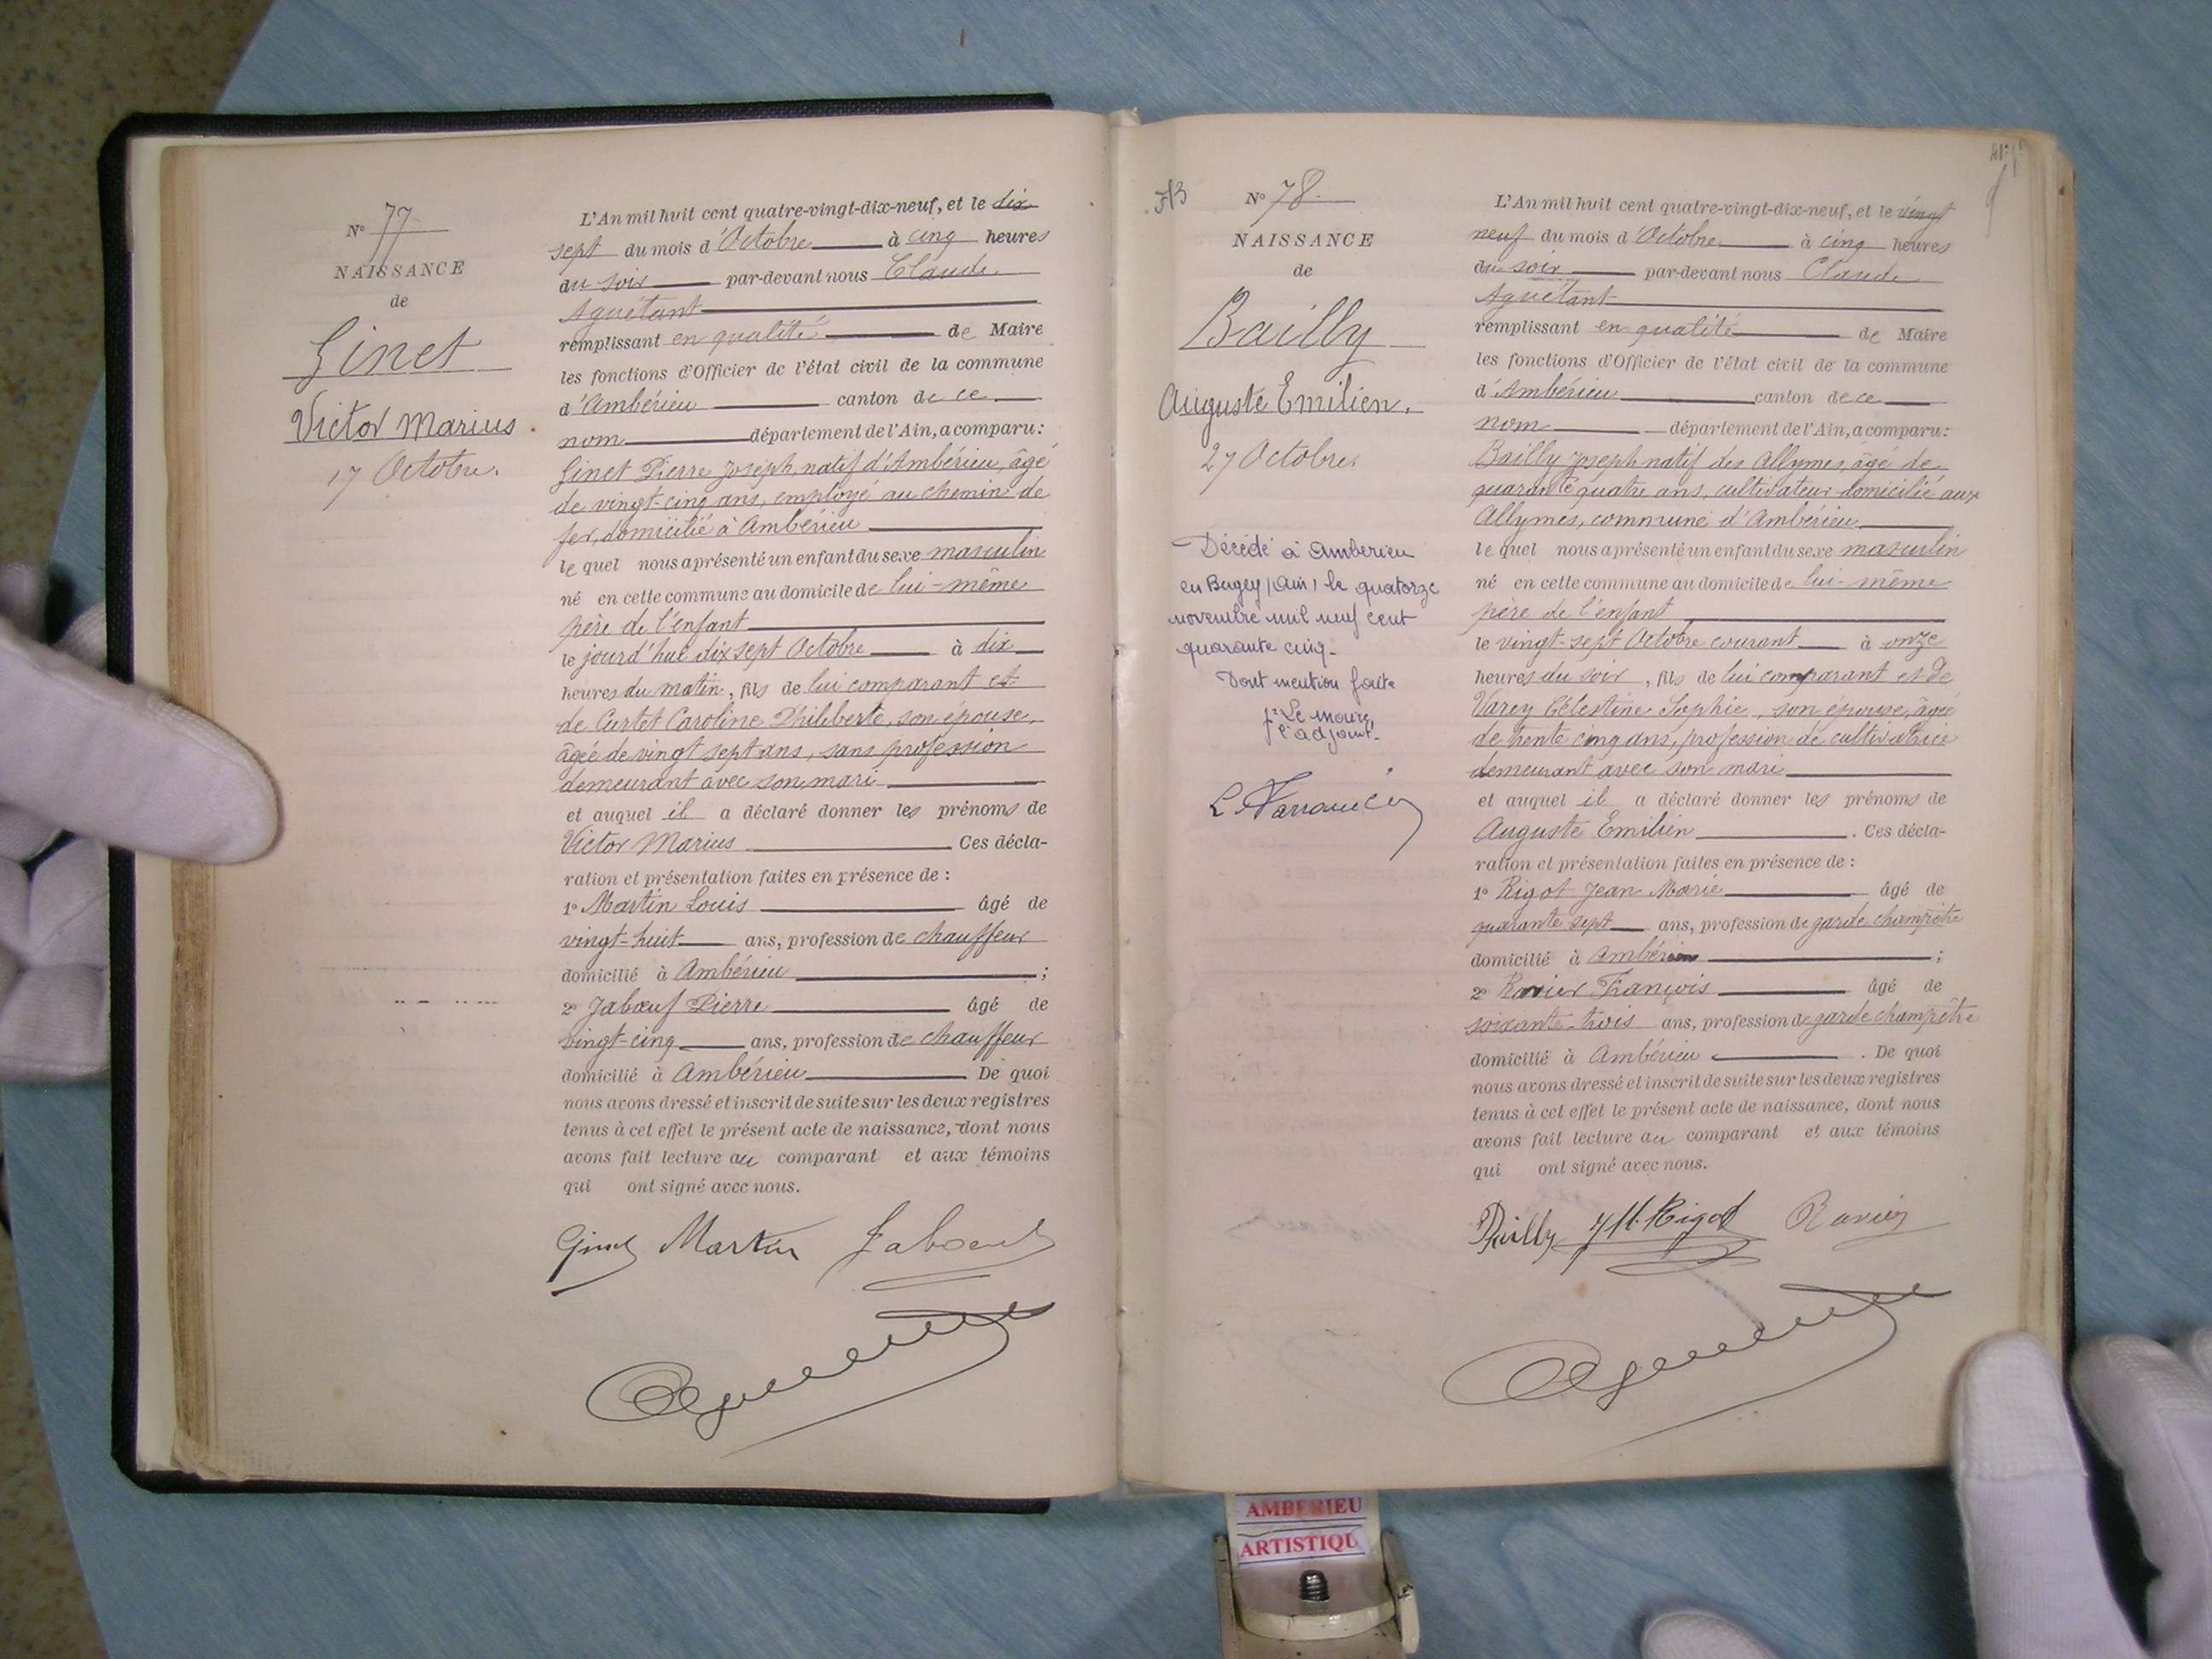 N° 77
NAISSANCE
de
Ginet
Victor Marius
17 Octobre.
L'An mil huit cent quatre-vingt-dix-neuf, et le dix
sept du mois d'Octobre à cinq heures
du soir par-devant nous Claude
Aguétant
remplissant en qualité de Maire
les fonctions d'Officier de l'état civil de la commune
d'Ambérieu canton de ce
nom département de l'Ain, a comparu :
Ginet Pierre Joseph, natif d'Ambérieu, âgé
de vingt-cinq ans, employé au chemin de
fer, domicilié à Ambérieu
le quel nous a présenté un enfant du sexe masculin
né en cette commune au domicile de lui-même
père de l'enfant
le jourd'hui dix sept Octobre à dix
heures du matin, fils de lui comparant et
de Curtet Caroline Philiberte, son épouse,
âgée de vingt sept ans, sans profession
demeurant avec son mari
et auquel il a déclaré donner les prénoms de
Victor Marius Ces décla-
ration et présentation faites en présence de :
1° Martin Louis âgé de
vingt-huit ans, profession de chauffeur
domicilié à Ambérieu ;
2° Jabœuf Pierre âgé de
vingt-cinq ans, profession de chauffeur
domicilié à Ambérieu De quoi
nous avons dressé et inscrit de suite sur les deux registres
tenus à cet effet le présent acte de naissance, dont nous
avons fait lecture au comparant et aux témoins
qui ont signé avec nous.
Ginet Martin Jaboeuf
Aguétant
N° 78
NAISSANCE
de
Bailly
Auguste Emilien.
27 Octobre.
Décédé à Amberieu
en Bugey (Ain) le quatorze
novembre mil neuf cent
quarante cinq.
Dont mention faite
pr Le maire,
l'adjoint.
L'An mil huit cent quatre-vingt-dix-neuf, et le vingt
neuf du mois d'Octobre à cinq heures
du soir par-devant nous Claude
Aguétant
remplissant en qualité de Maire
les fonctions d'Officier de l'état civil de la commune
d'Ambérieu canton de ce
nom département de l'Ain, a comparu :
Bailly Joseph natif des Allymes, âgé de
quarante quatre ans, cultivateur domicilié aux
Allymes, commune d'Ambérieu
le quel nous a présenté un enfant du sexe masculin
né en cette commune au domicile de lui-même
père de l'enfant
le vingt-sept Octobre courant à onze
heures du soir, fils de lui comparant et de
Varey Célestine Sophie, son épouse, âgée
de trente cinq ans, profession de cultivatrice
demeurant avec son mari
et auquel il a déclaré donner les prénoms de
Auguste Emilien . Ces décla-
ration et présentation faites en présence de :
1° Rigot Jean Marie âgé de
quarante sept ans, profession de garde champêtre
domicilié à Ambérieu ;
2° Ravier François âgé de
soixante-trois ans, profession de garde champêtre
domicilié à Ambérieu . De quoi
nous avons dressé et inscrit de suite sur les deux registres
tenus à cet effet le présent acte de naissance, dont nous
avons fait lecture au comparant et aux témoins
qui ont signé avec nous.
Bailly JM. Rigot Ravier
Aguétant
AMBERIEU
ARTISTIQU